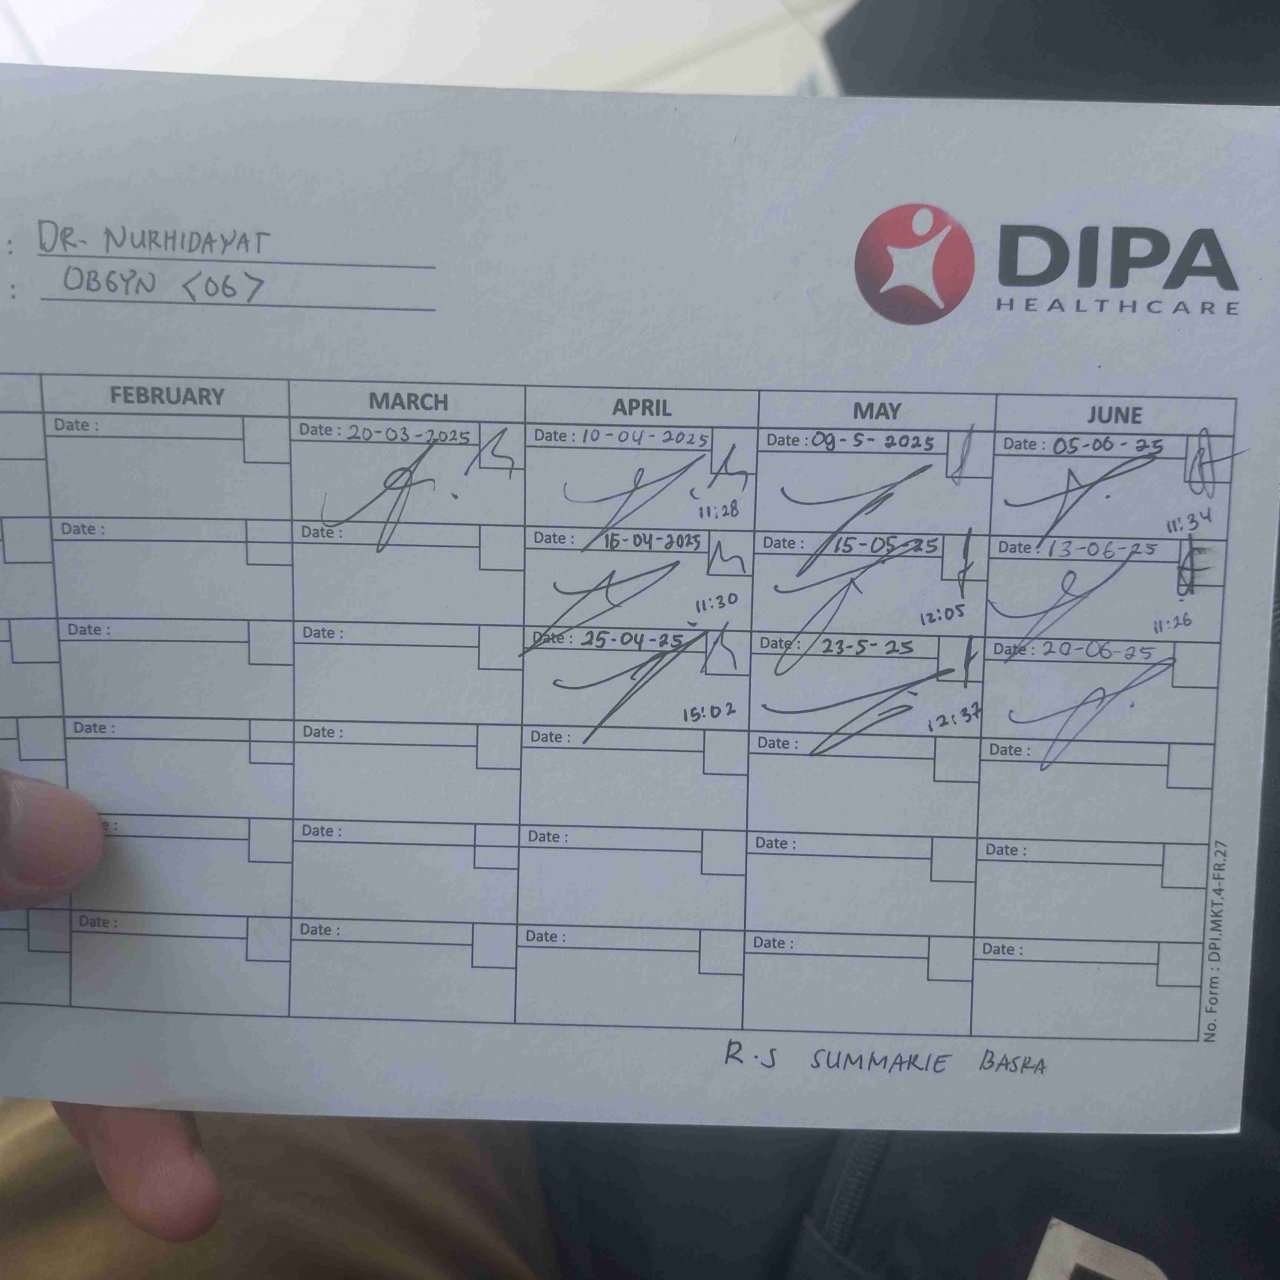 : DR- NURHIDAYAT
: OBGYN <06>
DIPA
HEALTHCARE
FEBRUARY MARCH APRIL MAY JUNE
Date : Date : 20-03-2025 Date : 10-04-2025 Date : 09-5-2025 Date : 05-06-25
11:28 11:34
Date : Date : Date : 15-04-2025 Date : 15-05-25 Date : 13-06-25
11:30 12:05 11:26
Date : Date : Date : 25-04-25 Date : 23-5-25 Date : 20-06-25
15:02 12:37
Date : Date : Date : Date : Date :
e : Date : Date : Date : Date :
Date : Date : Date : Date : Date :
No. Form : DPI.MKT.4-FR.27
R.S SUMMARIE BASRA